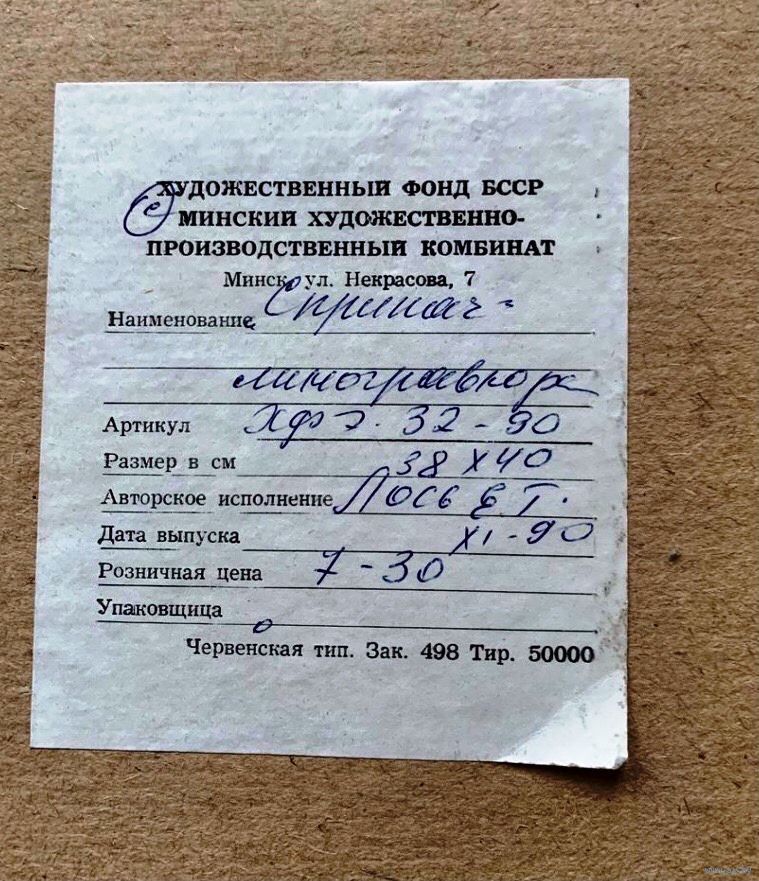 ХУДОЖЕСТВЕННЫЙ ФОНД БССР
(с) МИНСКИЙ ХУДОЖЕСТВЕННО-
ПРОИЗВОДСТВЕННЫЙ КОМБИНАТ
Минск, ул. Некрасова, 7
Наименование
линогравюра
Артикул ХФЭ. 32-90
Размер в см 38 х 40
Авторское исполнение Лось Е.Г.
Дата выпуска XI-90
Розничная цена 7-30
Упаковщица
Червенская тип. Зак. 498 Тир. 50000